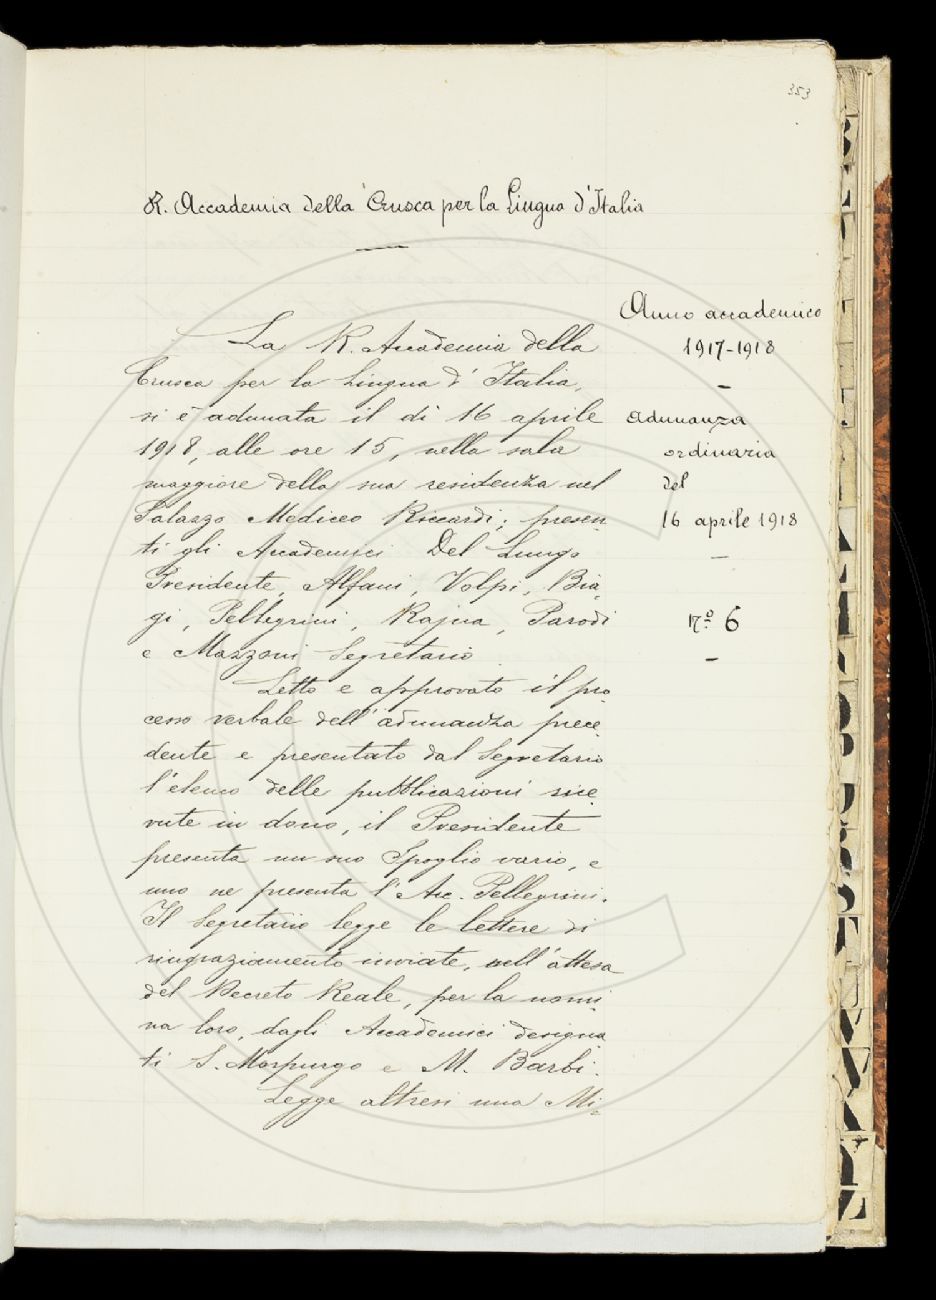 353
R. Accademia della Crusca per la Lingua d'Italia
Anno accademico
1917-1918
Adunanza
ordinaria
del
16 aprile 1918
n.º 6
La R. Accademia della
Crusca per la Lingua d'Italia,
si è adunata il dì 16 aprile
1918, alle ore 15, nella sala
maggiore della sua residenza nel
Palazzo Mediceo Riccardi; presen
ti gli Accademici Del Lungo
Presidente, Alfani, Volpi, Bia
gi, Pellegrini, Rajna, Parodi
e Mazzoni Segretario
Letto e approvato il pro
cesso verbale dell'adunanza prece
dente e presentato dal Segretario
l'elenco delle pubblicazioni rice
vute in dono, il Presidente
presenta un suo Spoglio vario, e
uno ne presenta l'Acc. Pellegrini.
Il Segretario legge le lettere di
ringraziamento inviate, nell'attesa
del Decreto Reale, per la nomi
na loro, dagli Accademici designa
ti S. Morpurgo e M. Barbi.
Legge altresì una Mi-